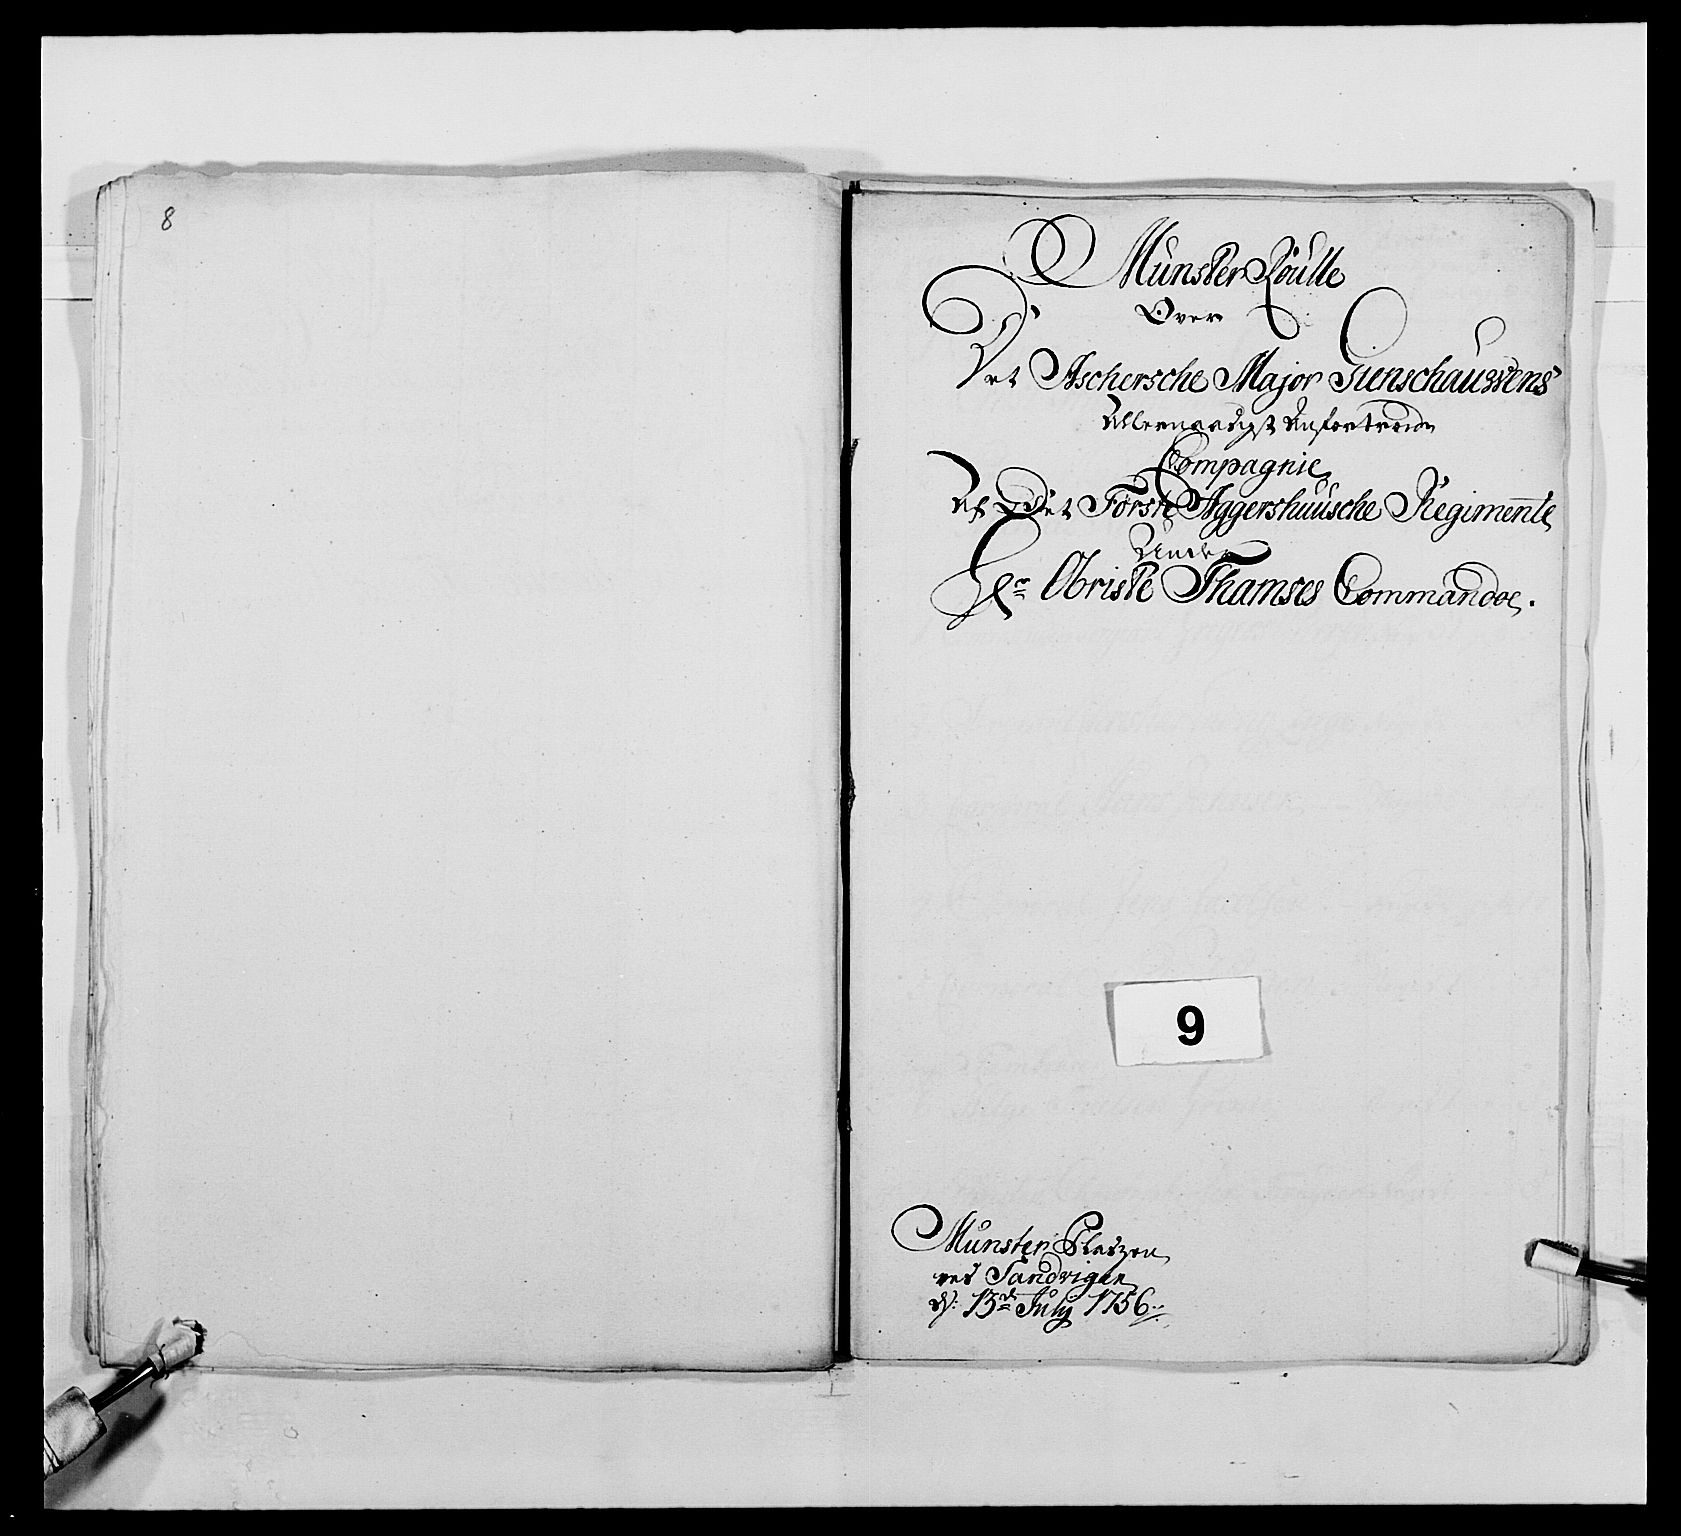 8
Munster Roulle
Over
Det Aschersche Major Gienschaussens
Allernaadigst Anfortroede
Compagnie
Af Det Første Aggershuusche Regimente
Under
Hr Obriste Thamses Commandoe.
9
Munster Pladzen
ved Sandvigen
d: 13de July 1756